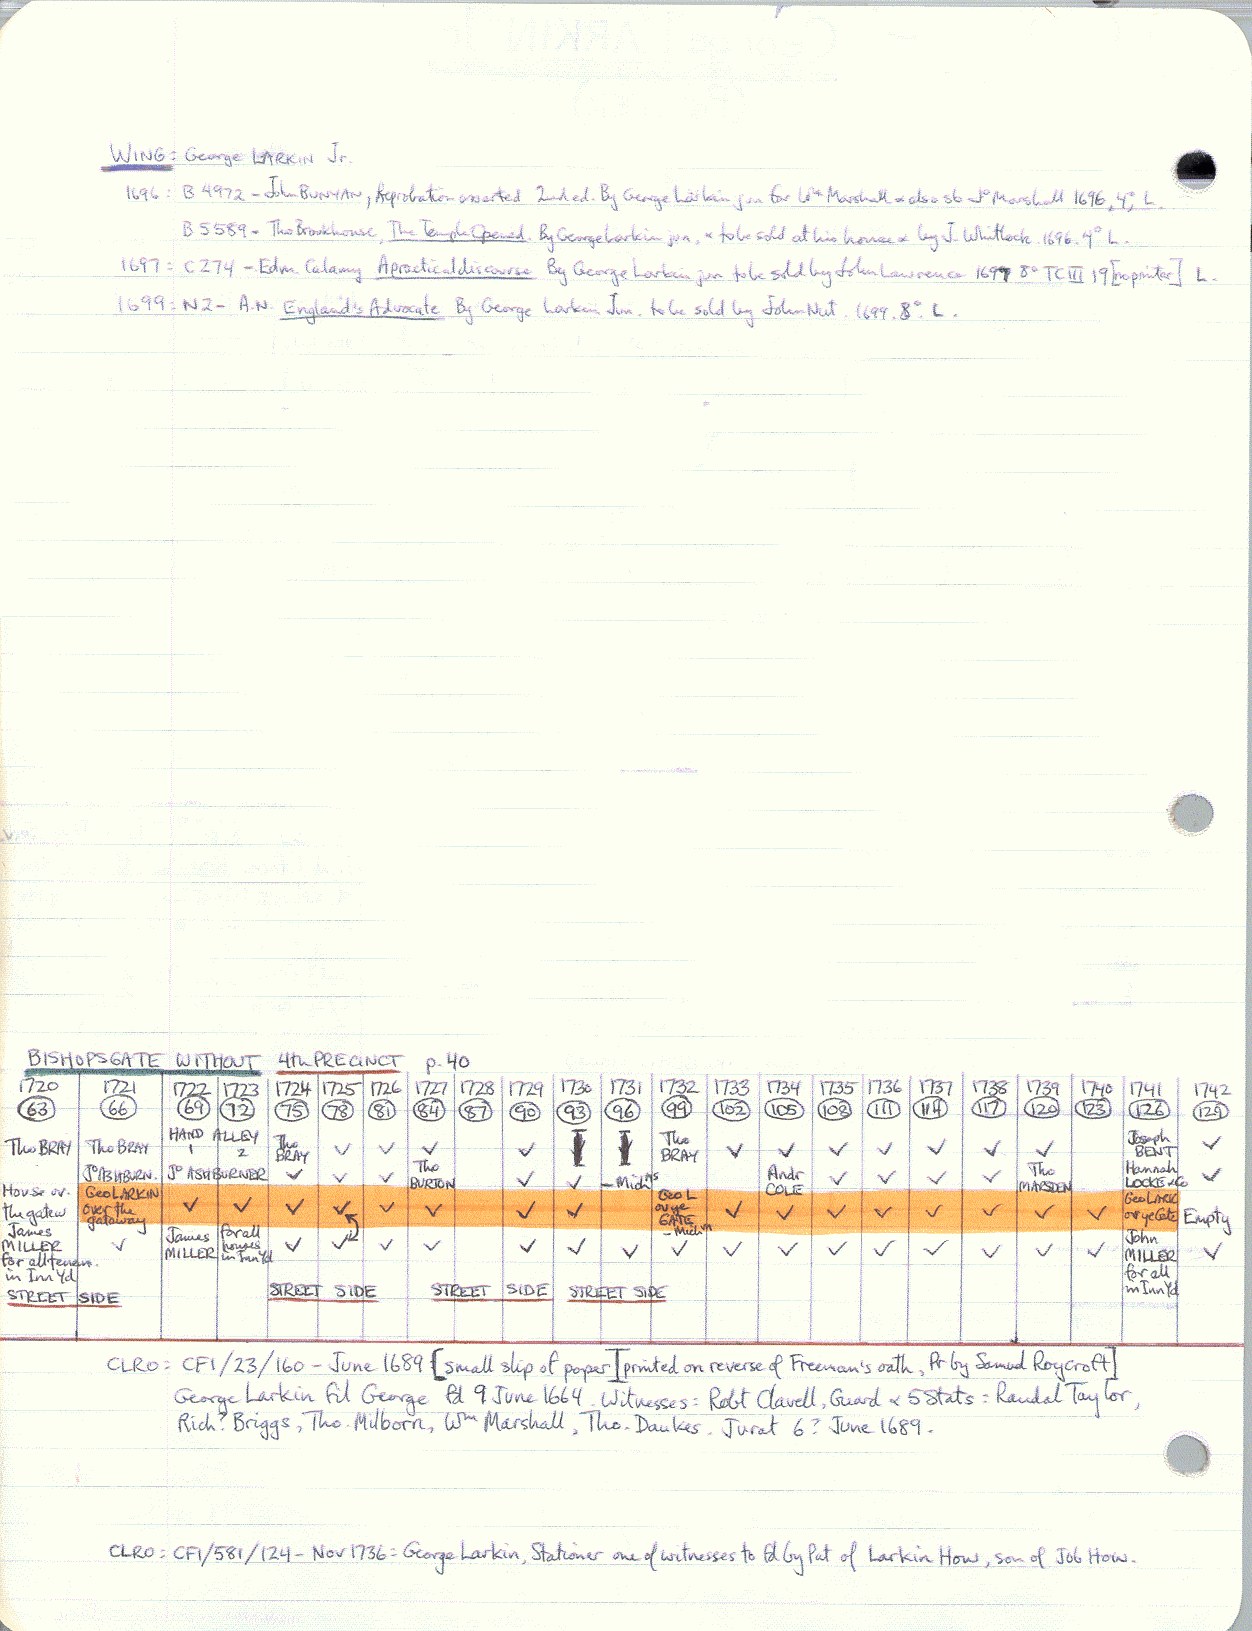 WING: George LARKIN Jr.
1696: B 4972 - John BUNYAN, Reprobation asserted 2nd ed. By George Larkin jun for Wm Marshall & also sb Jo Marshall 1696, 4°, L.
B 5589 - Tho Brookhouse, The Temple Opened. By George Larkin jun, & to be sold at his house & by J. Whitlock. 1696. 4° L.
1697: C274 - Edm. Calamy A practical discourse By George Larkin jun to be sold by John Lawrence 1697 8° TC III 19 [no printer] L.
1699: N2 - A.N. England's Advocate By George Larkin Jun. to be sold by John Nut. 1699. 8°. L.
BISHOPSGATE WITHOUT 4th PRECINCT p. 40
1720 1721 1722 1723 1724 1725 1726 1727 1728 1729 1730 1731 1732 1733 1734 1735 1736 1737 1738 1739 1740 1741 1742
63 66 69 72 75 78 81 84 87 90 93 96 99 102 105 108 111 114 117 120 123 126 129
HAND ALLEY
Tho BRAY Tho BRAY 1 2 Tho BRAY ✓ ✓ ✓ ✓ Tho BRAY ✓ ✓ ✓ ✓ ✓ ✓ ✓ Joseph BENT ✓
Jo ASHBURN. Jo ASHBURNER ✓ ✓ ✓ Tho BURTON ✓ ✓ - Michs Andr COLE ✓ ✓ ✓ ✓ Tho MARSDEN Hannah LOCKE & Co ✓
House ov. the gatew Geo LARKIN over the gateway ✓ ✓ ✓ ✓ ✓ ✓ ✓ ✓ Geo L ov ye GATE - Mich ✓ ✓ ✓ ✓ ✓ ✓ ✓ ✓ Geo LARK ov ye Gate Empty
James MILLER for all tenem. in Inn Yd ✓ James MILLER for all houses in Inn Yd ✓ ✓ ✓ ✓ ✓ ✓ ✓ ✓ ✓ ✓ ✓ ✓ ✓ ✓ ✓ ✓ John MILLER for all in Inn Yd ✓
STREET SIDE STREET SIDE STREET SIDE STREET SIDE
CLRO: CF1/23/160 - June 1689 [small slip of paper] printed on reverse of Freeman's oath, Pr by Samud Roycroft]
George Larkin fil George fd 9 June 1664. Witnesses: Robt Clavell, Guard & 5 Stats: Randal Taylor,
Rich? Briggs, Tho. Milborn, Wm Marshall, Tho. Dawkes. Jurat 6? June 1689.
CLRO: CF1/581/124 - Nov 1736: George Larkin, Stationer one of witnesses to fd by Pat of Larkin How, son of Job How.